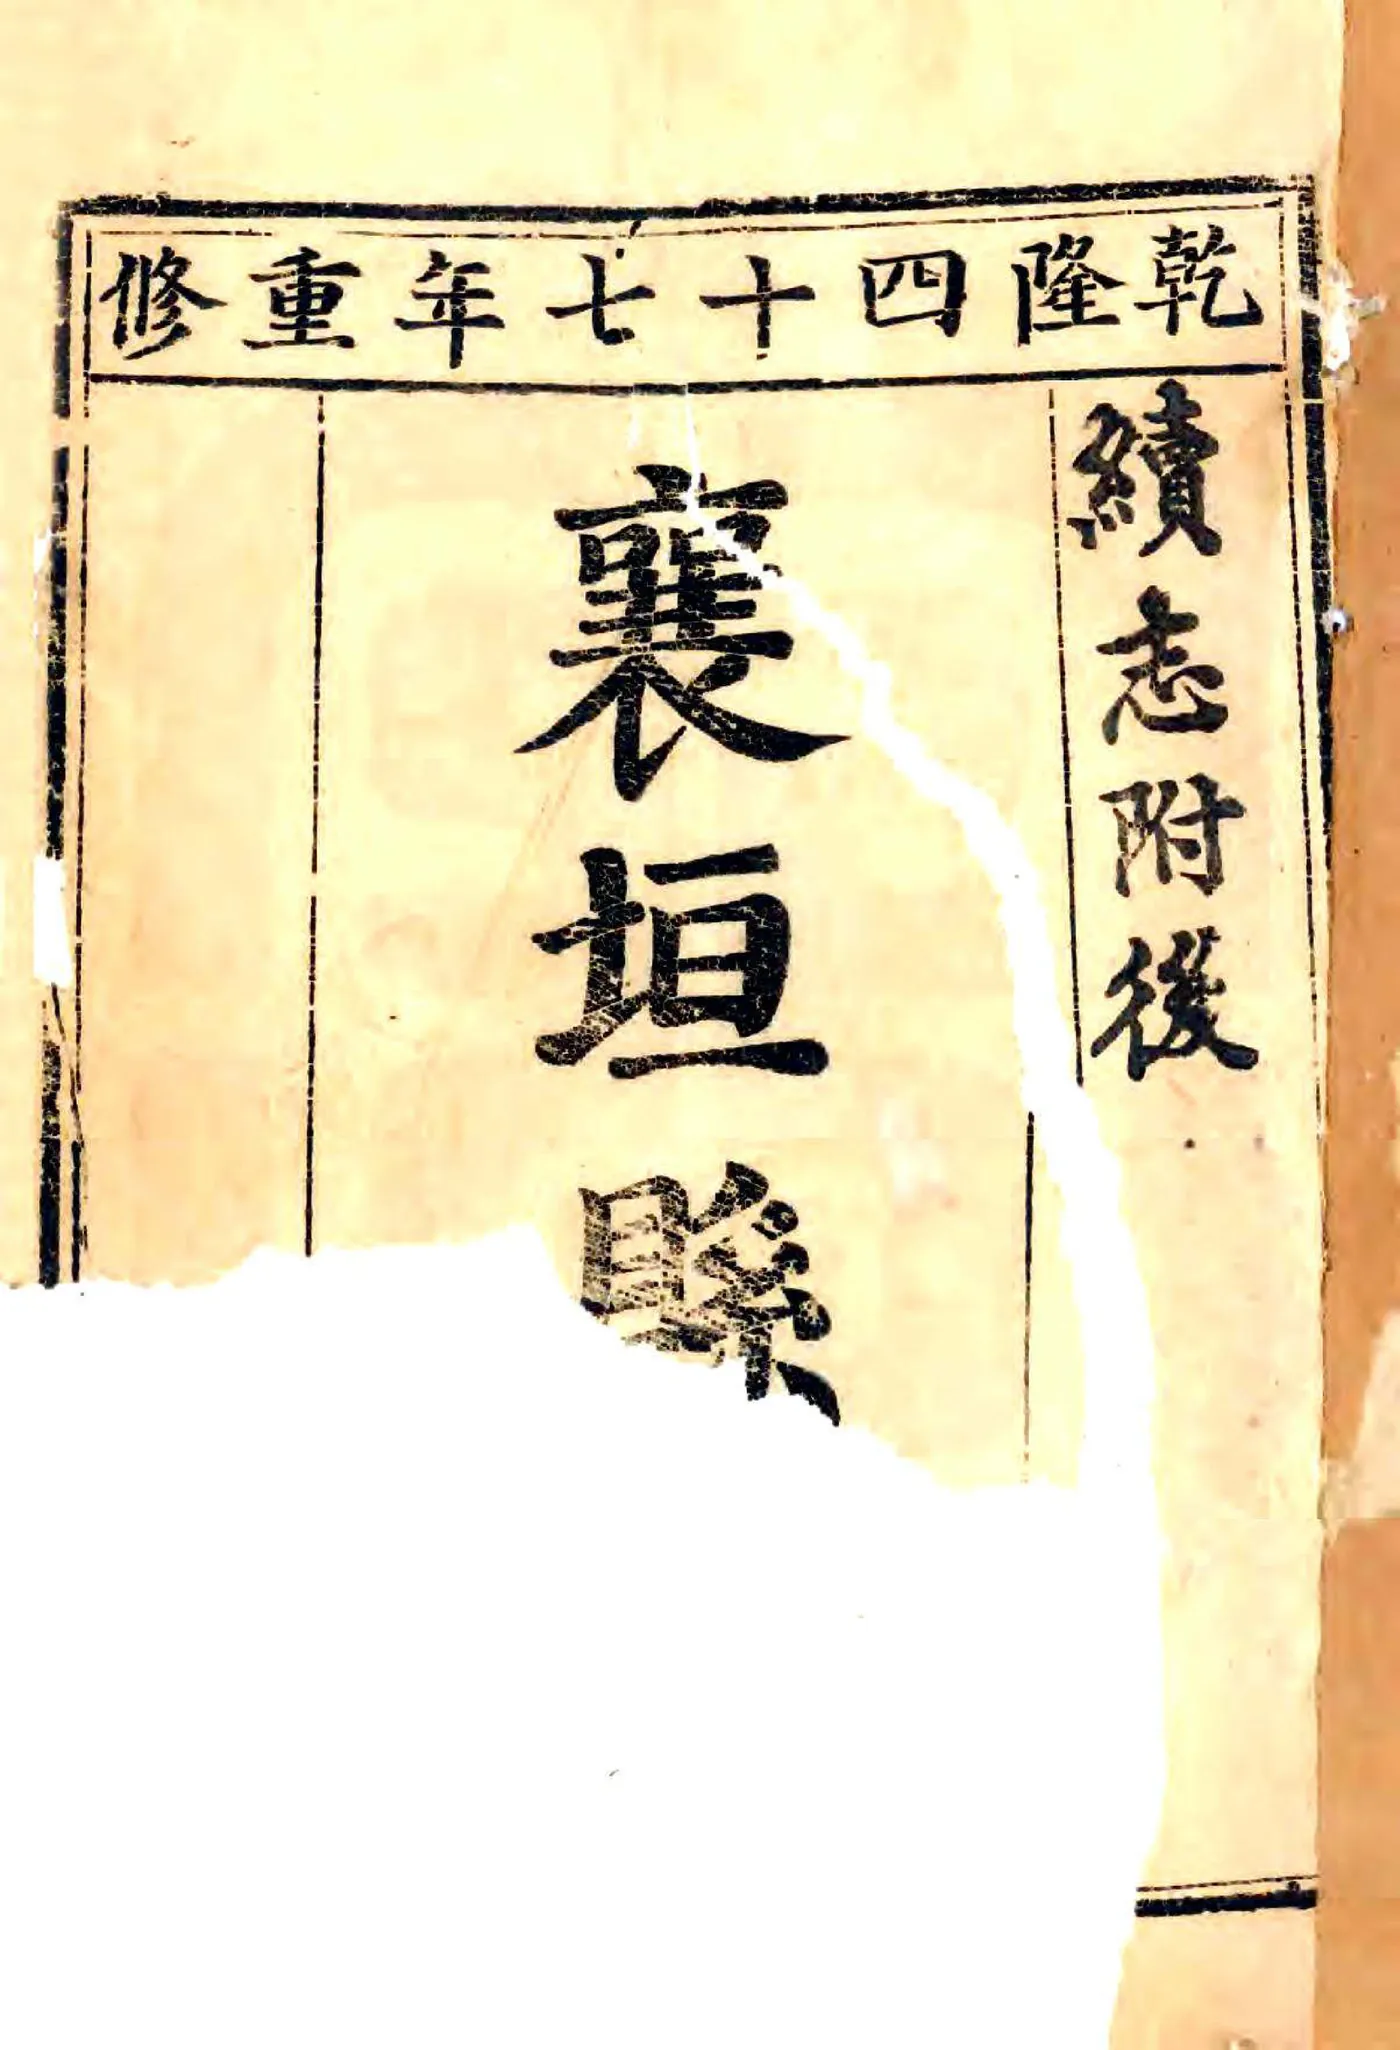 乾隆四十七年重修
續志附後
襄垣縣